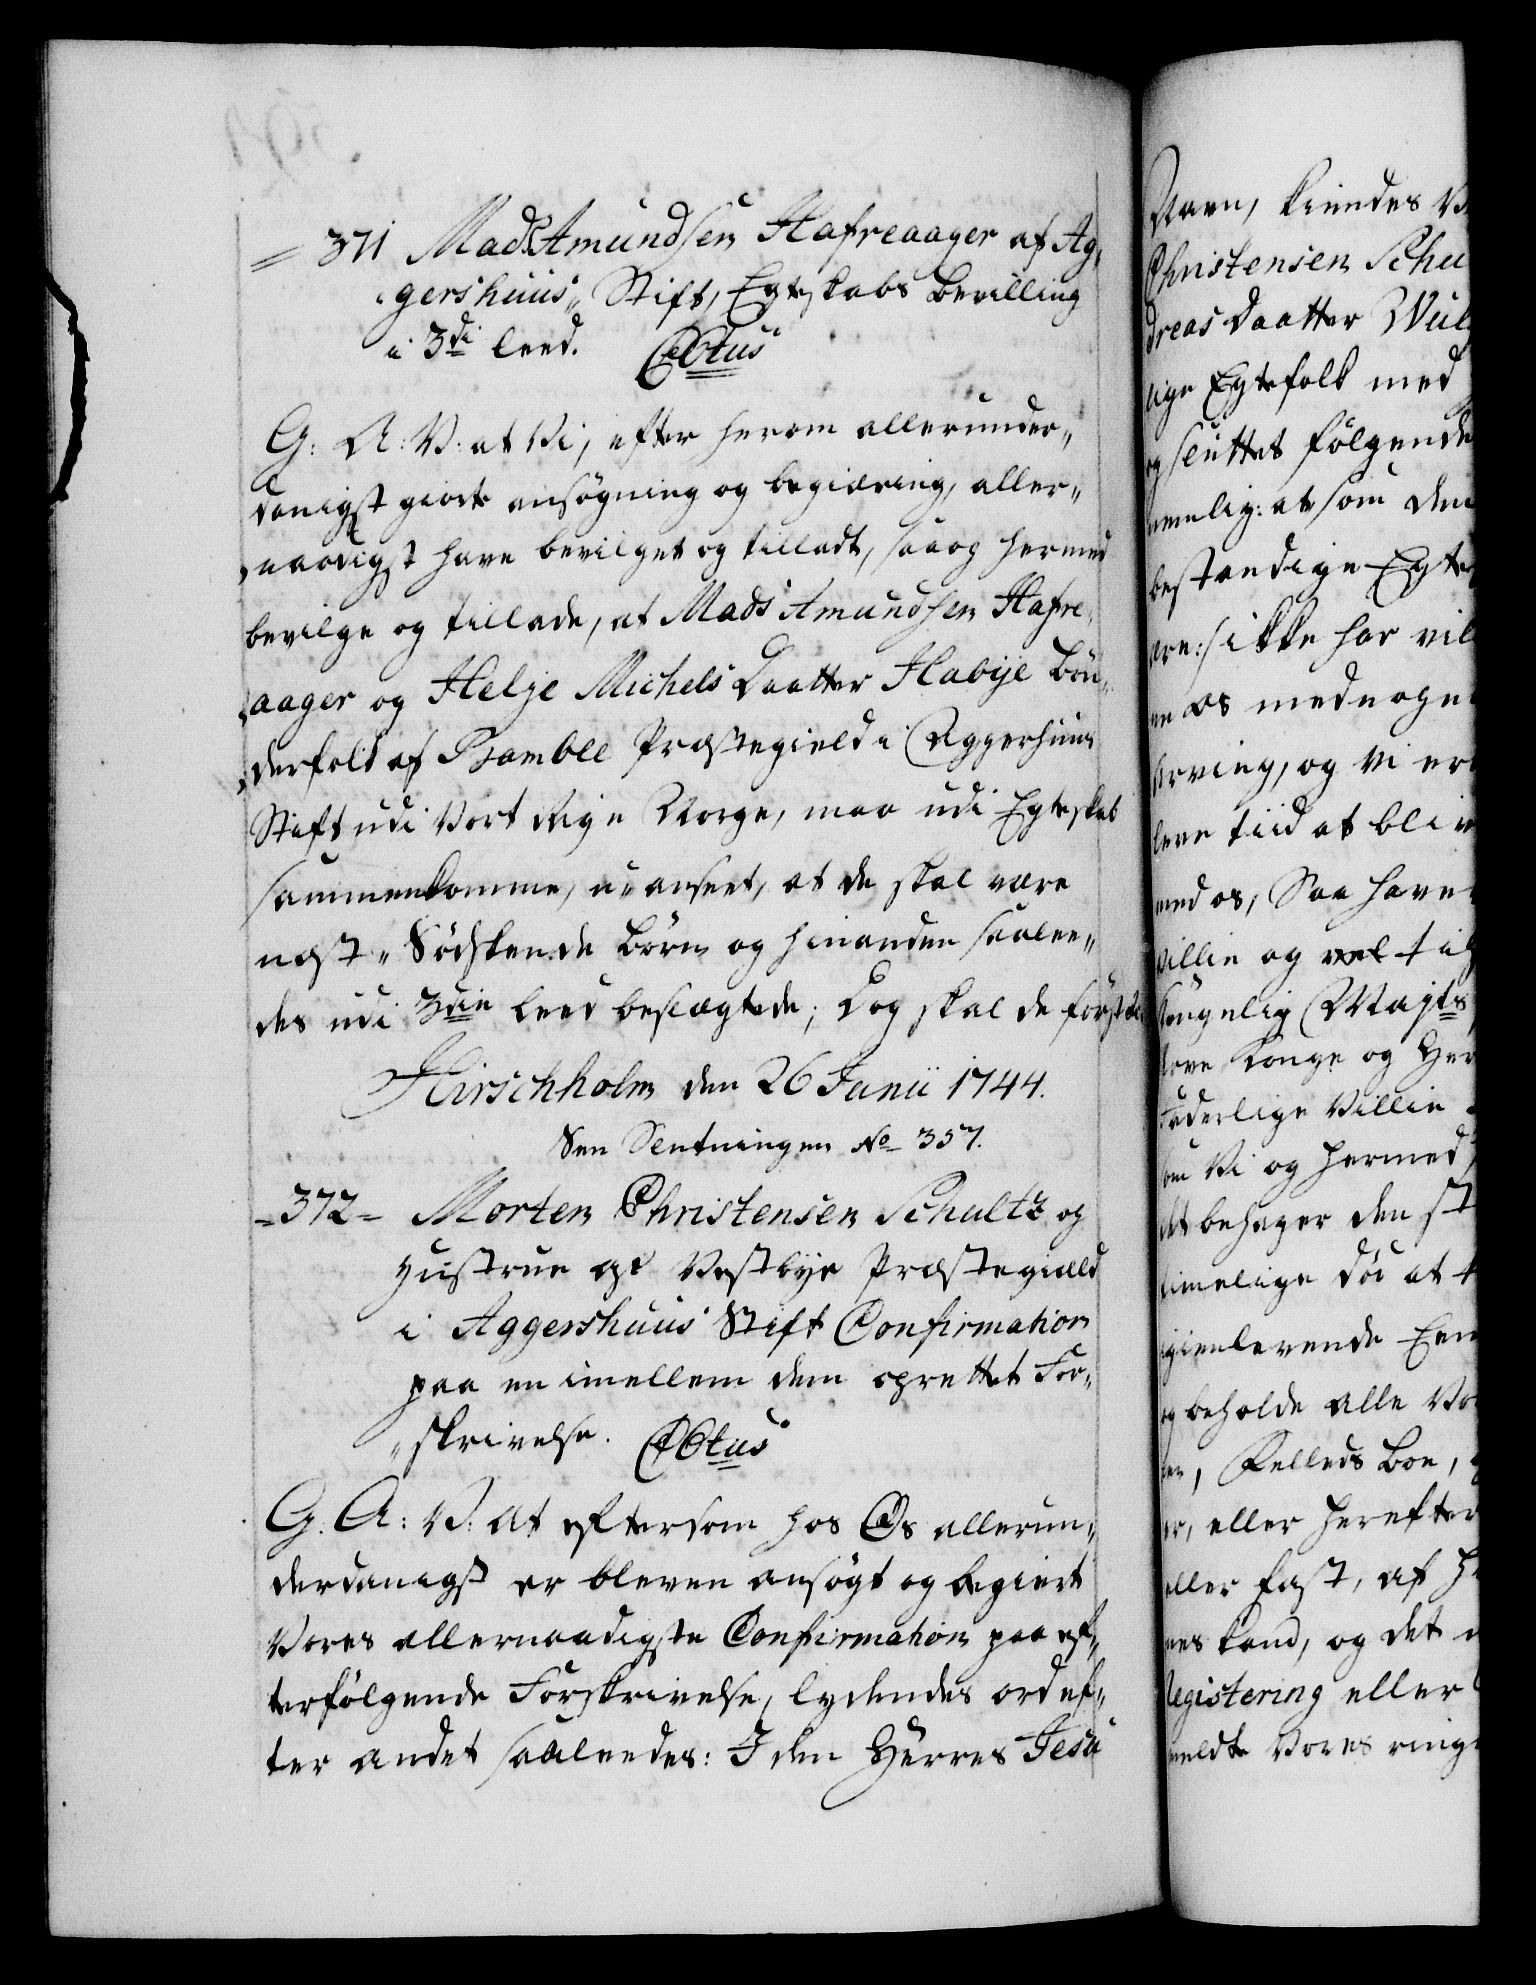 = 371 Mads Amundsen Hafreaager af Ag,
gershuus" Stift, Egteskabs Bevilling
i 3di leed. CBtus
G: A: V: at Vi, efter herom allerunder„
danigst giorte ansøgning og begiæring, aller„
„naadigst have bevilget og tilladt, saa og hermed
bevilge og tillade, at Mads Amundsen Hafre„
„aager og Helje Michels Daatter Habije bøn„
„derfolk af Bamble Præstegield i Aggerhuus
Stift udi Vort Rige Norge, maa udi Egteskab
sammenkomme, u-anseet, at de skal være
næst„ Sødskende Børn og hinanden saalee„
des udi 3die leed beslægtede; Dog skal de først &c
Hirschholm den 26 Junii 1744.
See Slutningen No 357.
=372= Morten Christensen Schultz og
Hustrue af Vestbye Præstegiæld
i Aggershuus Stift Confirmation
paa en imellem dem oprettet For„
„skrivelse. CBtus
G. A: V: At eftersom hos Os allerun„
derdanigst er bleven ansøgt og begiert
Vores allernaadigste Confirmation paa ef„
terfølgende Forskrivelse, lydendes ord ef„
ter andet saaleedes: I den Herres Jesu
Navn, kiendes V
Christensen Schu
dreas Daatter Wul
lige Egtefolk med
og sluttet følgende
nemlig: at som den
bestandige Egte
ære:/ ikke har vil
ne os med nogen
Arving, og Vi er
leve tiid at bliv
med os, Saa have
villie og vel til
Kongelig Mayts
Arve Konge og Her
Faderlige Villie
som Vi og hermed
det behager den st
timelige død at
igienlevende Een
og beholde alle Vo
, Felleds Boe,
er, eller herefter
eller fast, af H
nes kand, og det
Registering eller
meldte Vores ring